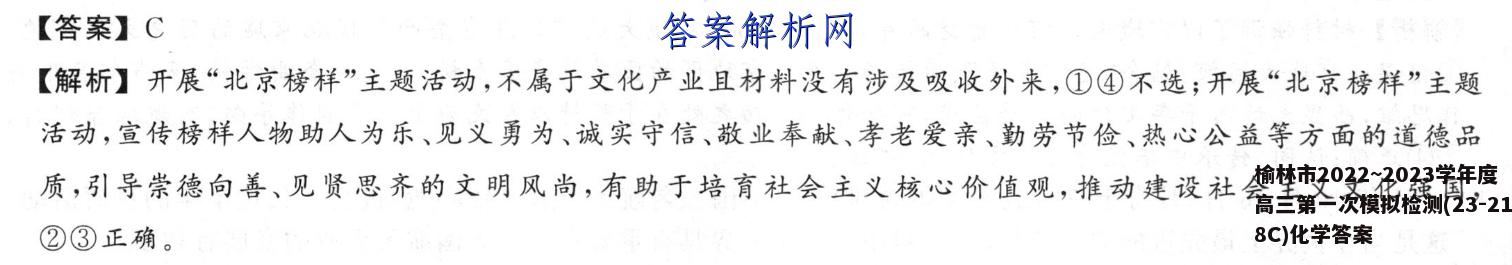 【答案】C
答案解析网
【解析】开展“北京榜样”主题活动,不属于文化产业且材料没有涉及吸收外来,①④不选;开展“北京榜样”主题
活动,宣传榜样人物助人为乐、见义勇为、诚实守信、敬业奉献、孝老爱亲、勤劳节俭、热心公益等方面的道德品
质,引导崇德向善、见贤思齐的文明风尚,有助于培育社会主义核心价值观,推动建设社会主义文化强国,
②③正确。
榆林市2022~2023学年度
高三第一次模拟检测(23-21
8C)化学答案